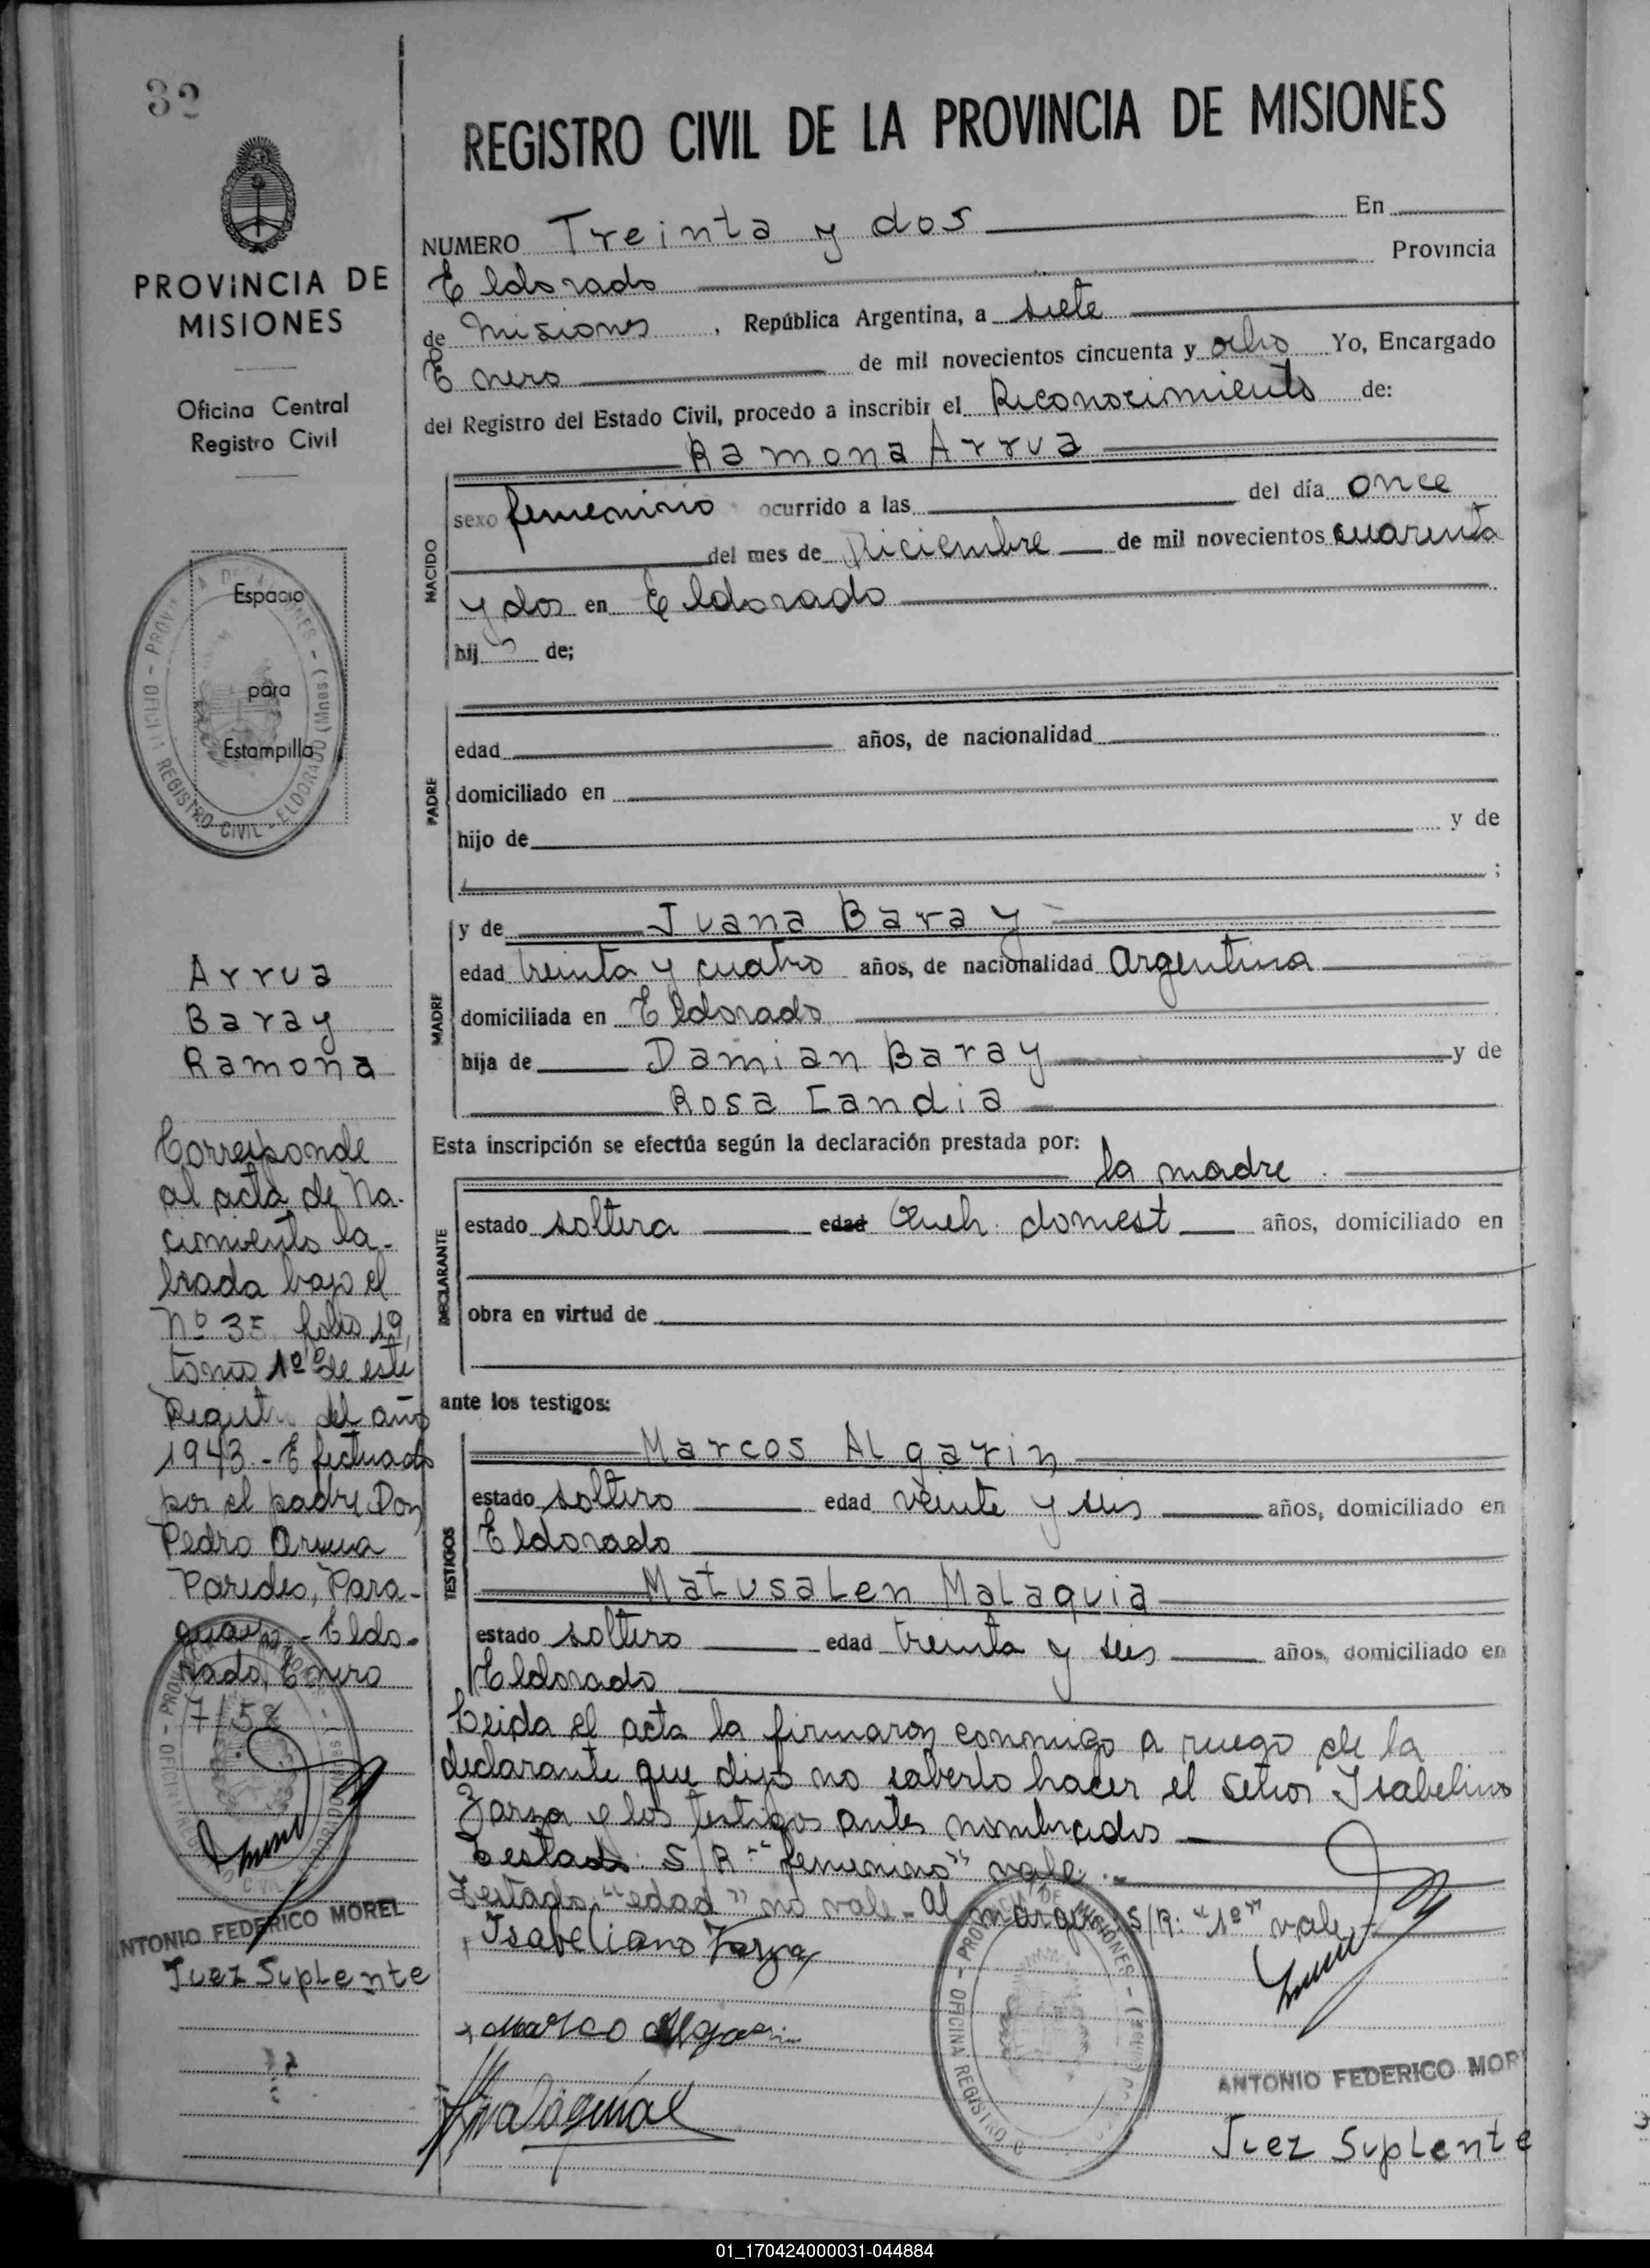 32
PROVINCIA DE
MISIONES
Oficina Central
Registro Civil
Espacio
para
Estampilla
Arrua
Baray
Ramona
Corresponde
al acta de Na-
cimiento la-
brada bajo el
Nº 35 folio 19,
tomo 1º de este
Registro del año
1943.- Efectuado
por el padre Don
Pedro Arrua
Paredes, Para-
guayo.- Eldo-
rado, Enero
7/58
ANTONIO FEDERICO MOREL
Juez Suplente
REGISTRO CIVIL DE LA PROVINCIA DE MISIONES
NUMERO Treinta y dos En
Eldorado Provincia
de Misiones, República Argentina, a siete
Enero de mil novecientos cincuenta y ocho Yo, Encargado
del Registro del Estado Civil, procedo a inscribir el Reconocimiento de:
Ramona Arrua
NACIDO
sexo femenino ocurrido a las del día once
del mes de Diciembre de mil novecientos cuarenta
y dos en Eldorado
hij de;
PADRE
edad años, de nacionalidad
domiciliado en
hijo de y de
;
MADRE
y de Juana Baray
edad treinta y cuatro años, de nacionalidad Argentina
domiciliada en Eldorado
hija de Damian Baray y de
Rosa Candia
Esta inscripción se efectúa según la declaración prestada por:
la madre
DECLARANTE
estado soltera edad Queh. domest años, domiciliado en
obra en virtud de
ante los testigos:
TESTIGOS
Marcos Algarin
estado soltero edad veinte y seis años, domiciliado en
Eldorado
Matusalen Malaquia
estado soltero edad treinta y seis años, domiciliado en
Eldorado
Leida el acta la firmaron conmigo a ruego de la
declarante que dijo no saberlo hacer el señor Isabelino
Zarza e los testigos antes nombrados
Testado: S/R "femenino" vale.-
Testado "edad" no vale- Al margen S/R: "1º" vale
Isabeliano Zarza
Marco Algarin
Malaquias
PROVINCIA DE MISIONES - OFICINA REGISTRO CIVIL - ELDORADO (Mnes)
ANTONIO FEDERICO MOR
Juez Suplente
01_170424000031-044884